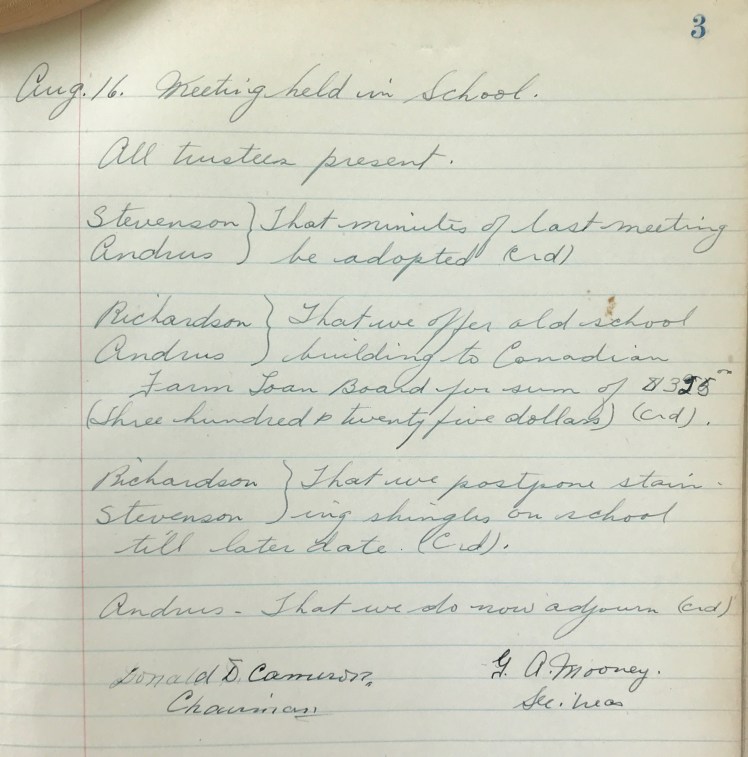 3
Aug. 16. Meeting held in School.
All trustees present.
Stevenson } That minutes of last meeting
Andrus } be adopted (crd)
Richardson } That we offer old school
Andrus } building to Canadian
Farm Loan Board for sum of $325
(Three hundred & twenty five dollars) (crd).
Richardson } That we postpone stain-
Stevenson } ing shingles on school
till later date. (Crd).
Andrus - That we do now adjourn (crd)
Donald D. Cameron. G. A. Mooney.
Chairman Sec. Treas